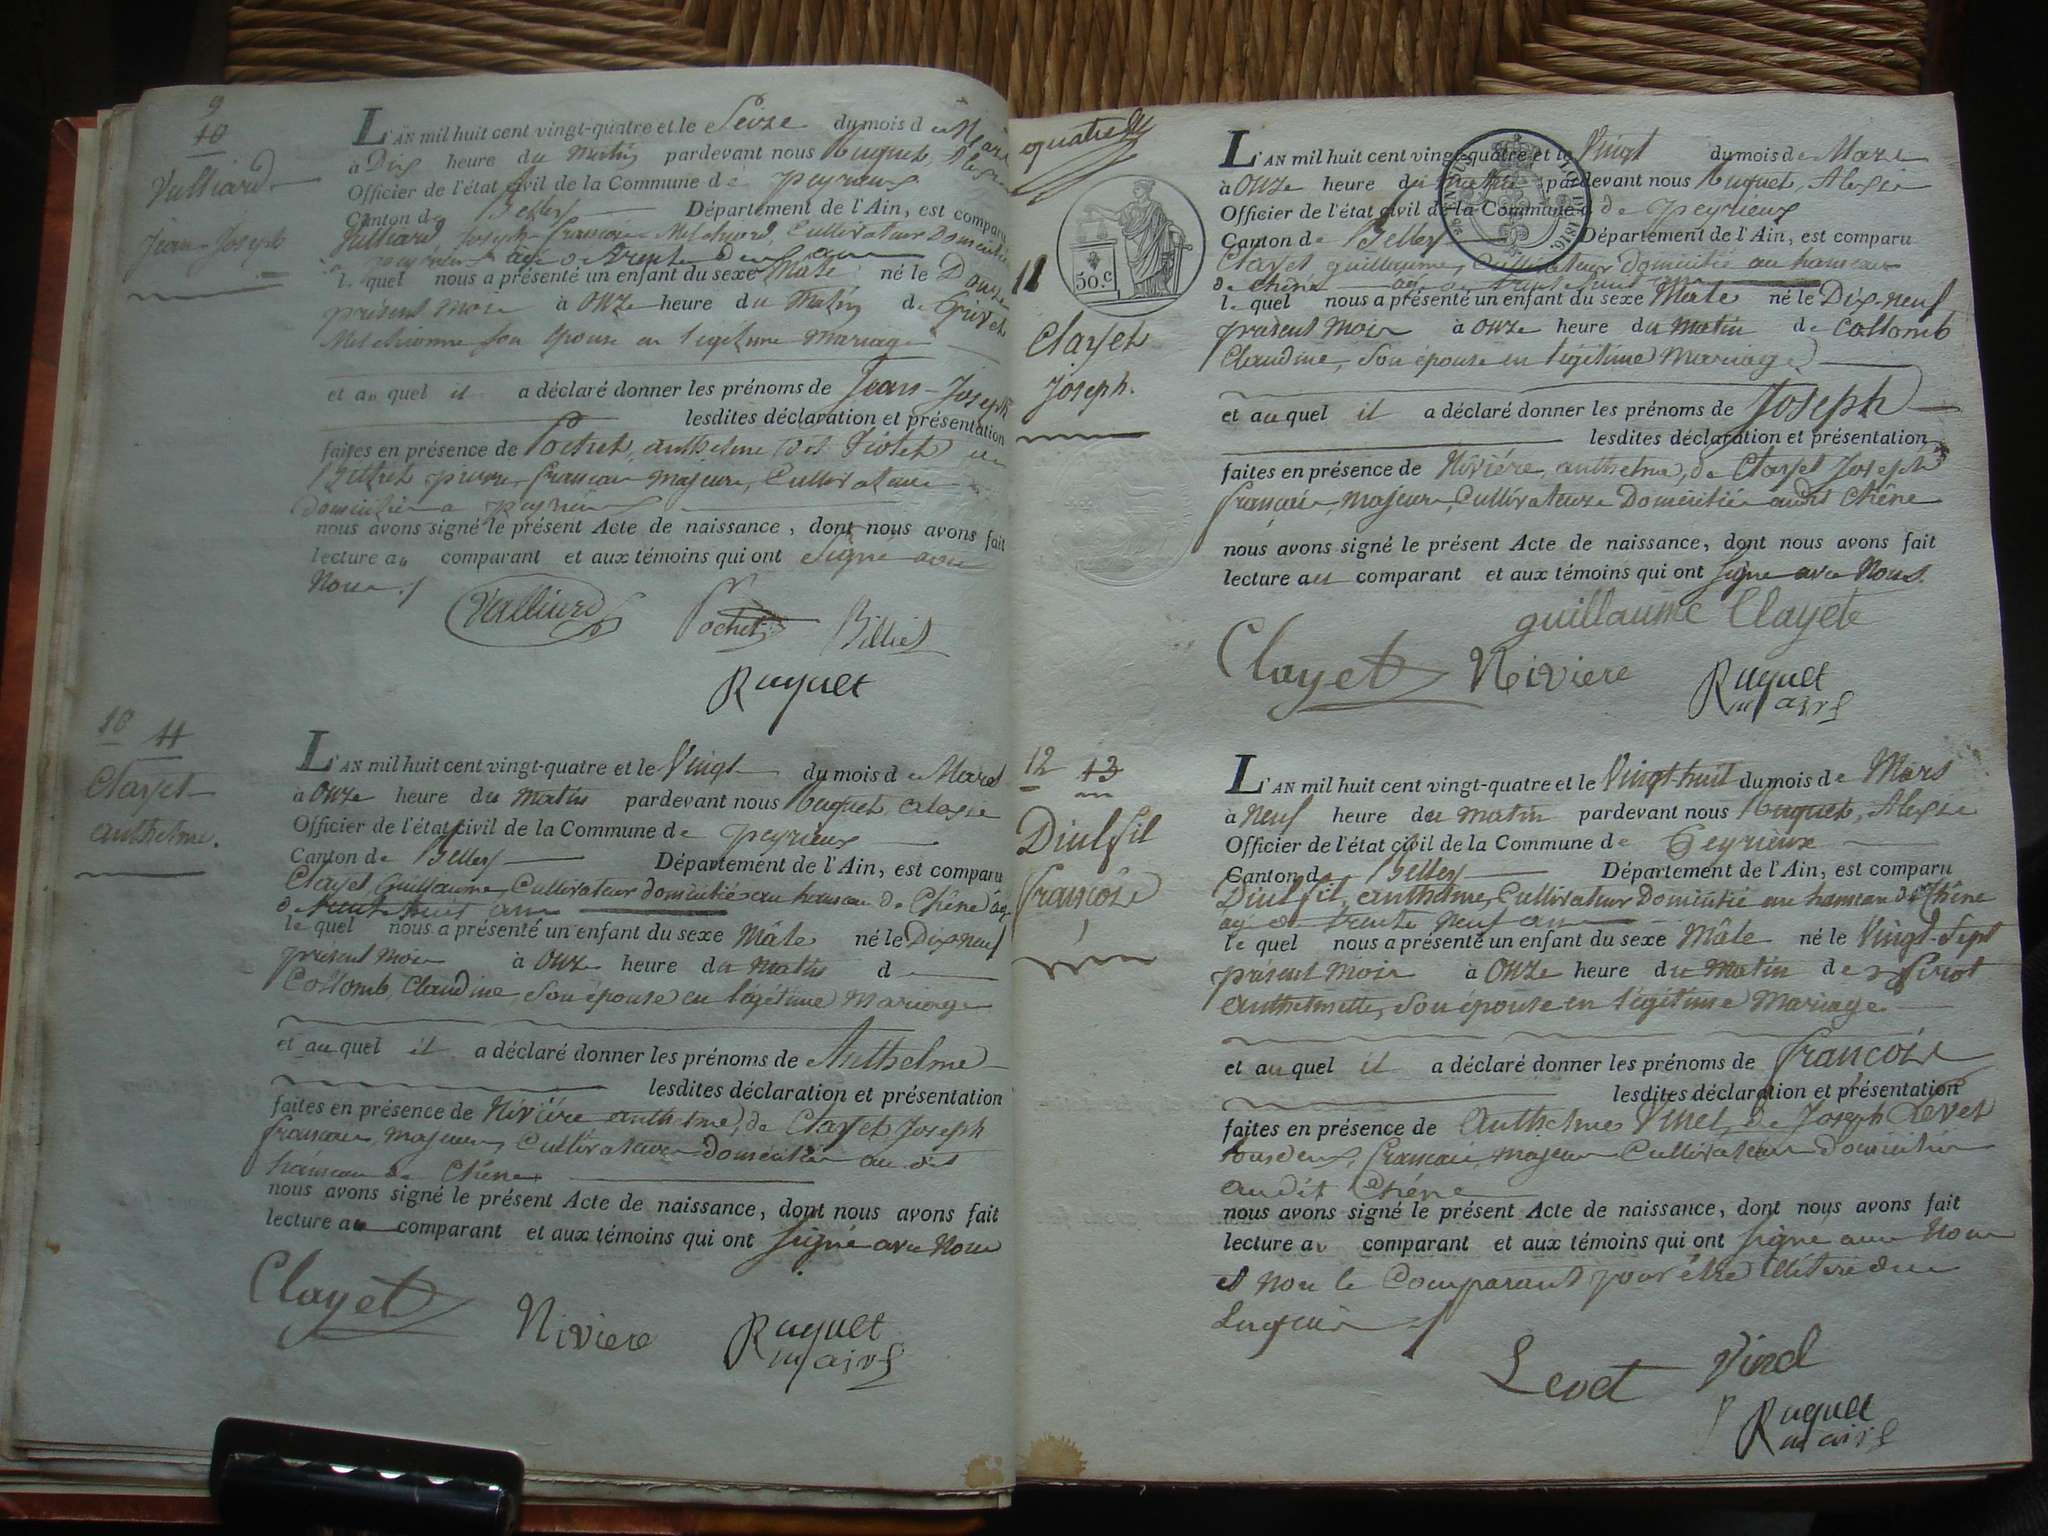 9
10
Vulliard
Jean-Joseph
L'AN mil huit cent vingt-quatre et le Seize du mois de Mars
à Dix heure du matin pardevant nous Ruquet, Alexis
Officier de l'état civil de la Commune de peyrieux
Canton de Belley Département de l'Ain, est comparu
Vulliard, Joseph françois Melchiord, Cultivateur Domicilié
a peyrieux agé de trente deux ans
lequel nous a présenté un enfant du sexe Mâle né le Douze
présent Mois à Onze heure du Matin de Grivet
Melchionne son épouse en légitime mariage
et auquel il a déclaré donner les prénoms de Jean-Joseph
lesdites déclaration et présentation
faites en présence de Pochet, anthelme et
Billiet pierre, françois majeurs, Cultivateurs
domiciliés a peyrieux
nous avons signé le présent Acte de naissance, dont nous avons fait
lecture au comparant et aux témoins qui ont Signé avec
Nous
Vulliard Pochet Billiet
Ruquet
10 11
Clayet
anthelme.
L'AN mil huit cent vingt-quatre et le Vingt du mois de Mars
à Onze heure du matin pardevant nous Ruquet, alexis
Officier de l'état civil de la Commune de peyrieux
Canton de Belley Département de l'Ain, est comparu
Clayet, Guillaume, Cultivateur domicilié au hameau de Chêne âgé
de trente huit ans
lequel nous a présenté un enfant du sexe Mâle né le Dix neuf
présent Mois à Onze heure du Matin d
Collomb, Claudine, Son épouse en légitime Mariage
et auquel il a déclaré donner les prénoms de Anthelme
lesdites déclaration et présentation
faites en présence de Nivière anthelme, de Clayet Joseph
francais, majeurs, Cultivateurs domiciliés au dit
hameau de Chêne
nous avons signé le présent Acte de naissance, dont nous avons fait
lecture au comparant et aux témoins qui ont Signé avec Nous
Clayet Niviere Ruquet
maire
quatre
50.C
11
Clayet
Joseph.
L'AN mil huit cent vingt-quatre et le Vingt du mois de Mars
à Onze heure du matin pardevant nous Ruquet, Alexis
Officier de l'état civil de la Commune de peyrieux
Canton de Belley Département de l'Ain, est comparu
Clayet guillaume, Cultivateur domicilié au hameau
de Chêne agé de trente huit ans
lequel nous a présenté un enfant du sexe Mâle né le Dix-neuf
présent Mois à Onze heure du Matin de Collomb
Claudine, Son épouse en légitime Mariage
et auquel il a déclaré donner les prénoms de Joseph
lesdites déclaration et présentation
faites en présence de Nivière, anthelme, de Clayet Joseph
français, majeurs, Cultivateurs Domiciliés audit Chêne
nous avons signé le présent Acte de naissance, dont nous avons fait
lecture au comparant et aux témoins qui ont Signé avec Nous.
guillaume Clayet
Clayet Niviere Ruquet
maire
12 13
Diulfil
françois
L'AN mil huit cent vingt-quatre et le Vingt-huit du mois de Mars
à Neuf heure du matin pardevant nous Ruquet, Alexis
Officier de l'état civil de la Commune de Peyrieux
Canton de Belley Département de l'Ain, est comparu
Diulfil, anthelme, Cultivateur Domicilié au hameau de Chêne
agé de trente neuf ans
lequel nous a présenté un enfant du sexe Mâle né le Vingt-Sept
présent Mois à Onze heure du Matin de
Anthelmette, Son épouse en légitime Mariage
et auquel il a déclaré donner les prénoms de françois
lesdites déclaration et présentation
faites en présence de Anthelme Vinel, de Joseph Levet
tous deux, francais, majeurs Cultivateurs Domiciliés
audit Chêne
nous avons signé le présent Acte de naissance, dont nous avons fait
lecture au comparant et aux témoins qui ont signé avec Nous
et non le Comparant pour être illitéré de ce
Enquis
Levet Vinel
Ruquet
maire